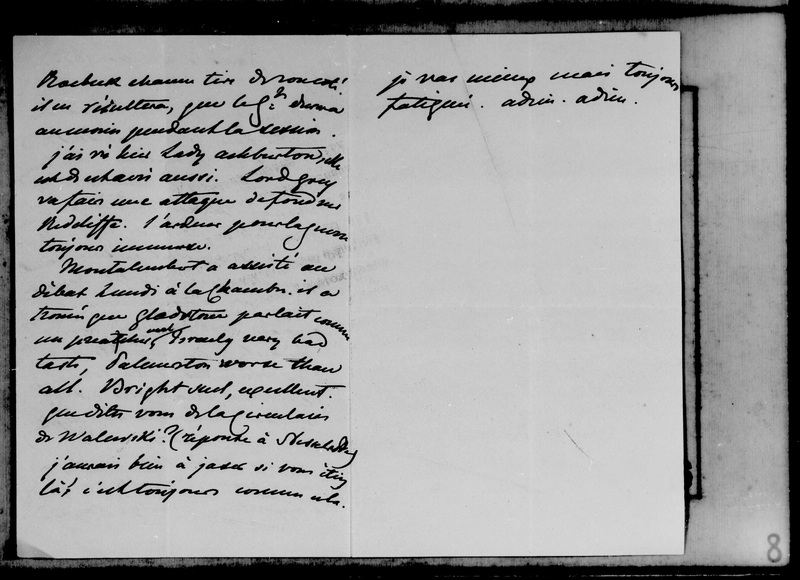 Roebuck chacun tire de son coté.
il en résultera, que le Gt durera
au moins pendant la session.
j'ai vû hier Lady Ashburton, elle
est de cet avis aussi. Lord Grey
va faire une attaque de fond sur
Redcliffe. l'ardeur pour la guerre
toujours immense.
Montalembert a assisté au
débat Lundi à la Chambre. il a
trouvé que Gladstone parlait comme
un preatcher, Israely very bad
taste, Palmerston worse than
all. Bright seul, excellent.
que dites vous de la circulaire
de Walewski? (réponse à Nesselrode)
j'aurais bien à jaser si vous étiez
là, c'est toujours comme cela.
je vais mieux mais toujours
fatiguée. adieu. adieu.
8